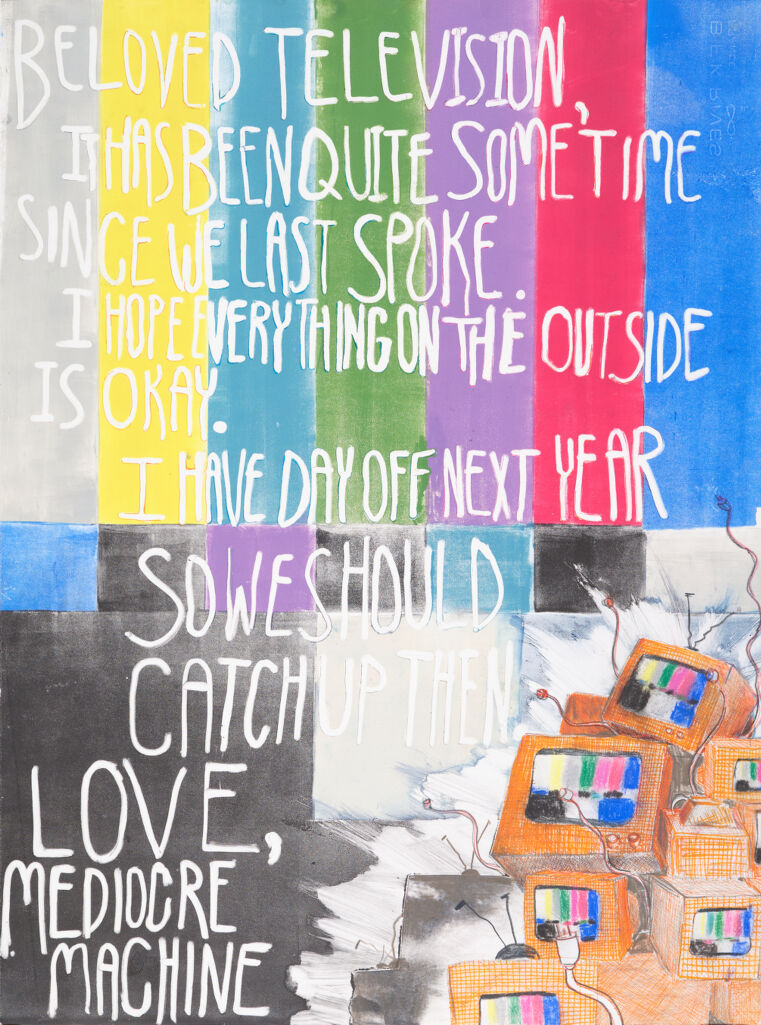 BELOVED TELEVISION,
IT HAS BEEN QUITE SOME TIME
SINCE WE LAST SPOKE.
I HOPE EVERYTHING ON THE OUTSIDE
IS OKAY.
I HAVE DAY OFF NEXT YEAR
SO WE SHOULD
CATCH UP THEN.
LOVE,
MEDIOCRE
MACHINE
BFK RIVES